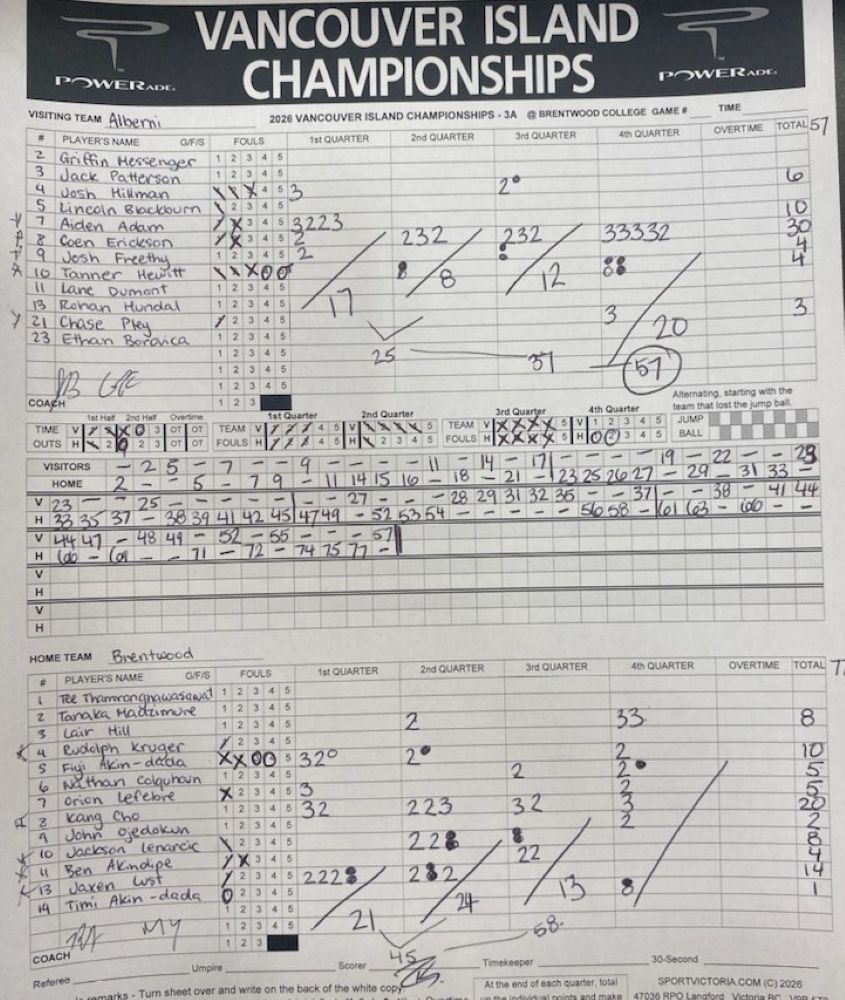 VANCOUVER ISLAND
CHAMPIONSHIPS
POWERADE
POWERADE
VISITING TEAM Alberni 2026 VANCOUVER ISLAND CHAMPIONSHIPS - 3A @ BRENTWOOD COLLEGE GAME # TIME
# PLAYER'S NAME G/F/S FOULS 1ST QUARTER 2nd QUARTER 3rd QUARTER 4th QUARTER OVERTIME TOTAL 57
2 Griffin Messenger 1 2 3 4 5
3 Jack Patterson 1 2 3 4 5
4 Josh Hillman 4 5 3 2 6
5 Lincoln Blackburn 2 3 4 5
7 Aiden Adam 3 4 5 3223 10
8 Coen Erickson 3 4 5 2 232 232 33332 30
9 Josh Freethy 1 2 3 4 5 2 4
10 Tanner Hewitt 4
11 Lane Dumont 1 2 3 4 5
13 Rohan Hundal 1 2 3 4 5
21 Chase Pley 2 3 4 5 3 3
23 Ethan Boravica 1 2 3 4 5
17 8 12 20
25 37 57
COACH 1 2 3
1st Half 2nd Half Overtime 1st Quarter 2nd Quarter 3rd Quarter 4th Quarter
Alternating, starting with the
team that lost the jump ball.
TIME V OT OT TEAM V 4 5 V 5 TEAM V 5 V 1 2 3 4 5 JUMP
OUTS H OT OT FOULS H 4 5 H 2 3 4 5 FOULS H 5 H 3 4 5 BALL
VISITORS - 2 5 - 7 - - 9 - - - - 11 - 14 - 17 - - - 19 - 22 - - 23
HOME 2 - - 5 - 7 9 - 11 14 15 16 - 18 - 21 - 23 25 26 27 - 29 - 31 33 -
V 23 - - 25 - - - - - - 27 - - - 28 29 31 32 35 - - 37 - - 38 - 41 44
H 33 35 37 - 38 39 41 42 45 47 49 - 52 53 54 - - - - - 56 58 - 61 63 - 66 - -
V 44 47 - 48 49 - 52 - 55 - - - 57
H 66 - 69 - - 71 - 72 - 74 75 77 -
V
H
V
H
HOME TEAM Brentwood
# PLAYER'S NAME G/F/S FOULS 1ST QUARTER 2nd QUARTER 3rd QUARTER 4th QUARTER OVERTIME TOTAL
1 Tee Thamrongnawasawat 1 2 3 4 5
2 Tanaka Madzimure 1 2 3 4 5 2 33 8
3 Lair Hill 1 2 3 4 5
4 Rudolph Kruger 2 3 4 5 2
5 Fiyi Akin-dada 5 32 2 2 10
6 Nathan Colquhoun 1 2 3 4 5 2 2 5
7 Orion Lefebre 2 3 4 5 3 3 5
8 Kang Cho 1 2 3 4 5 32 223 32 20
9 John Ojedokun 1 2 3 4 5 2 2
10 Jackson Lenarcic 2 3 4 5 22 8
11 Ben Akindipe 3 4 5 22 4
13 Jaxen Lust 2 3 4 5 222 2 2 14
14 Timi Akin-dada 2 3 4 5 1
21 24 13
45 58
COACH 1 2 3
Referee Umpire Scorer Timekeeper 30-Second
remarks - Turn sheet over and write on the back of the white copy.
At the end of each quarter, total
SPORTVICTORIA.COM (C) 2026